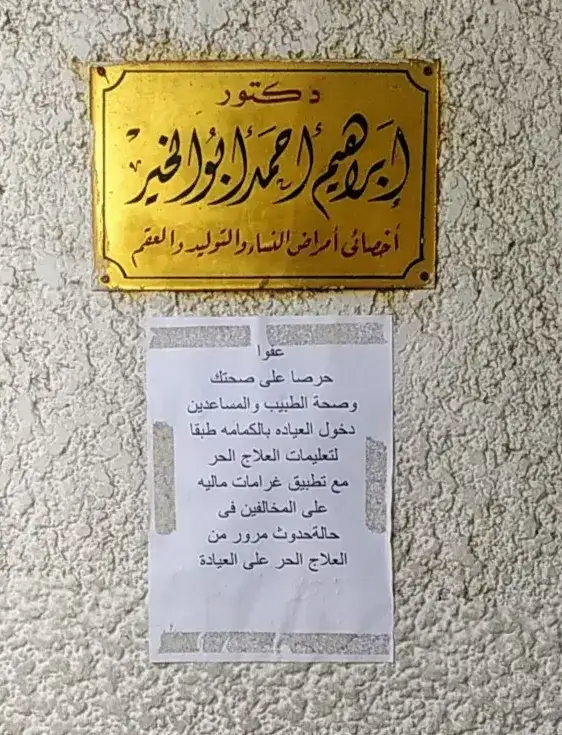 دكتور
إبراهيم أحمد أبو الخير
أخصائى أمراض النساء والتوليد والعقم
عفوا
حرصا على صحتك
وصحة الطبيب والمساعدين
دخول العياده بالكمامه طبقا
لتعليمات العلاج الحر
مع تطبيق غرامات ماليه
على المخالفين فى
حالةحدوث مرور من
العلاج الحر على العيادة